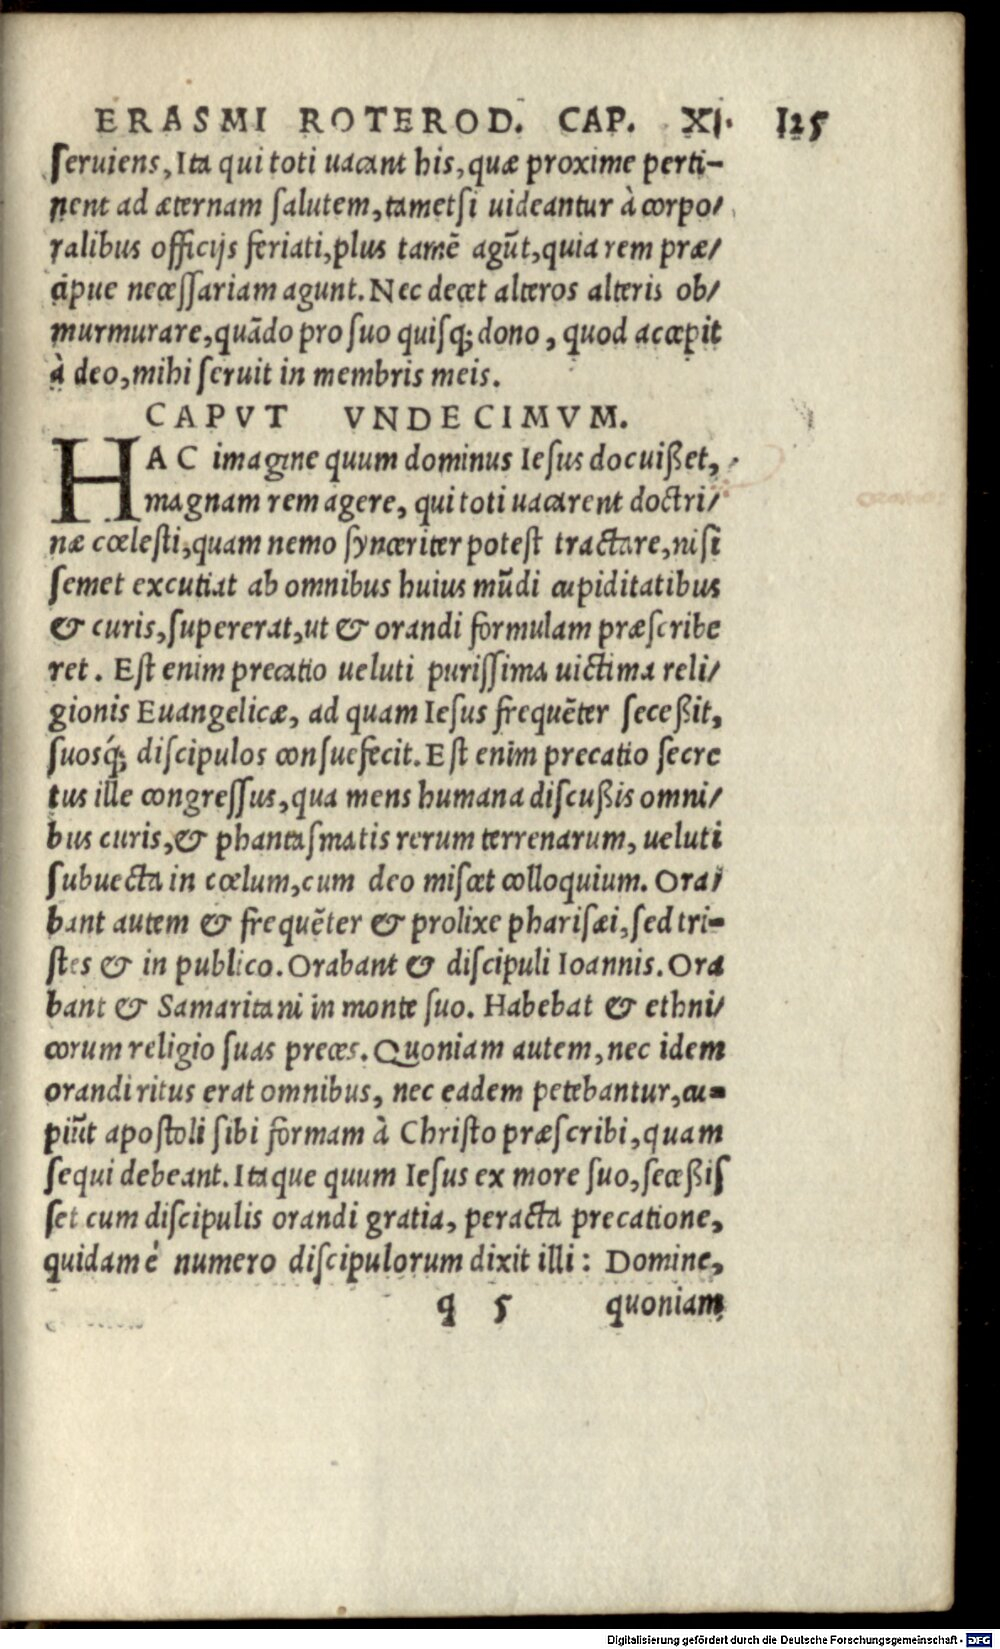 ERASMI ROTEROD. CAP. XI. 125
seruiens, Ita qui toti uacant his, quæ proxime perti-
nent ad æternam salutem, tametsi uideantur à corpo/
ralibus officijs feriati, plus tamē agūt, quia rem præ/
cipue necessariam agunt. Nec decet alteros alteris ob/
murmurare, quādo pro suo quisq; dono, quod accepit
à deo, mihi seruit in membris meis.
CAPVT VNDECIMVM.
HAC imagine quum dominus Iesus docuißet,
magnam rem agere, qui toti uacarent doctri/
næ cœlesti, quam nemo synceriter potest tractare, nisi
semet excutiat ab omnibus huius mūdi cupiditatibus
& curis, supererat, ut & orandi formulam præscribe
ret. Est enim precatio ueluti purissima uictima reli/
gionis Euangelicæ, ad quam Iesus frequēter seceßit,
suosq́; discipulos consuefecit. Est enim precatio secre
tus ille congressus, qua mens humana discußis omni/
bus curis, & phantasmatis rerum terrenarum, ueluti
subuecta in cœlum, cum deo miscet colloquium. Ora/
bant autem & frequēter & prolixe pharisæi, sed tri-
stes & in publico. Orabant & discipuli Ioannis. Ora
bant & Samaritani in monte suo. Habebat & ethni/
corum religio suas preces. Quoniam autem, nec idem
orandi ritus erat omnibus, nec eadem petebantur, cu-
piūt apostoli sibi formam à Christo præscribi, quam
sequi debeant. Itaque quum Iesus ex more suo, seceßis
set cum discipulis orandi gratia, peracta precatione,
quidam è numero discipulorum dixit illi: Domine,
q 5 quoniam
Digitalisierung gefördert durch die Deutsche Forschungsgemeinschaft - DFG